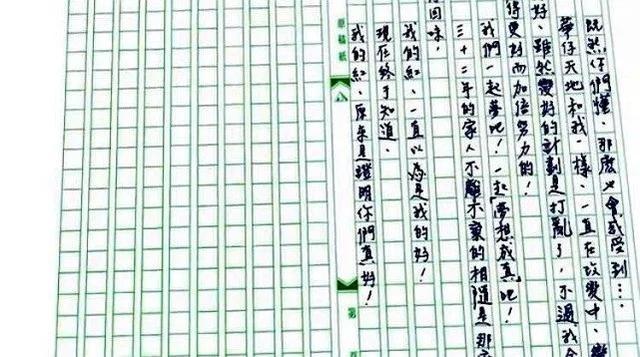 既然你們懂、那麼必會感受到…
華仔天地和我一樣、一直在改變中、
好、雖然變好的計劃是打亂了，不過我會
得更好而加倍努力的！
我們一起夢吧！一起「夢想成真」吧！
三十二年的家人不離不棄的相隨是那
回味，
我的紅、一直以為是我的好！
現在終于知道、
我的紅、原來是證明你們真好！
原稿紙
第